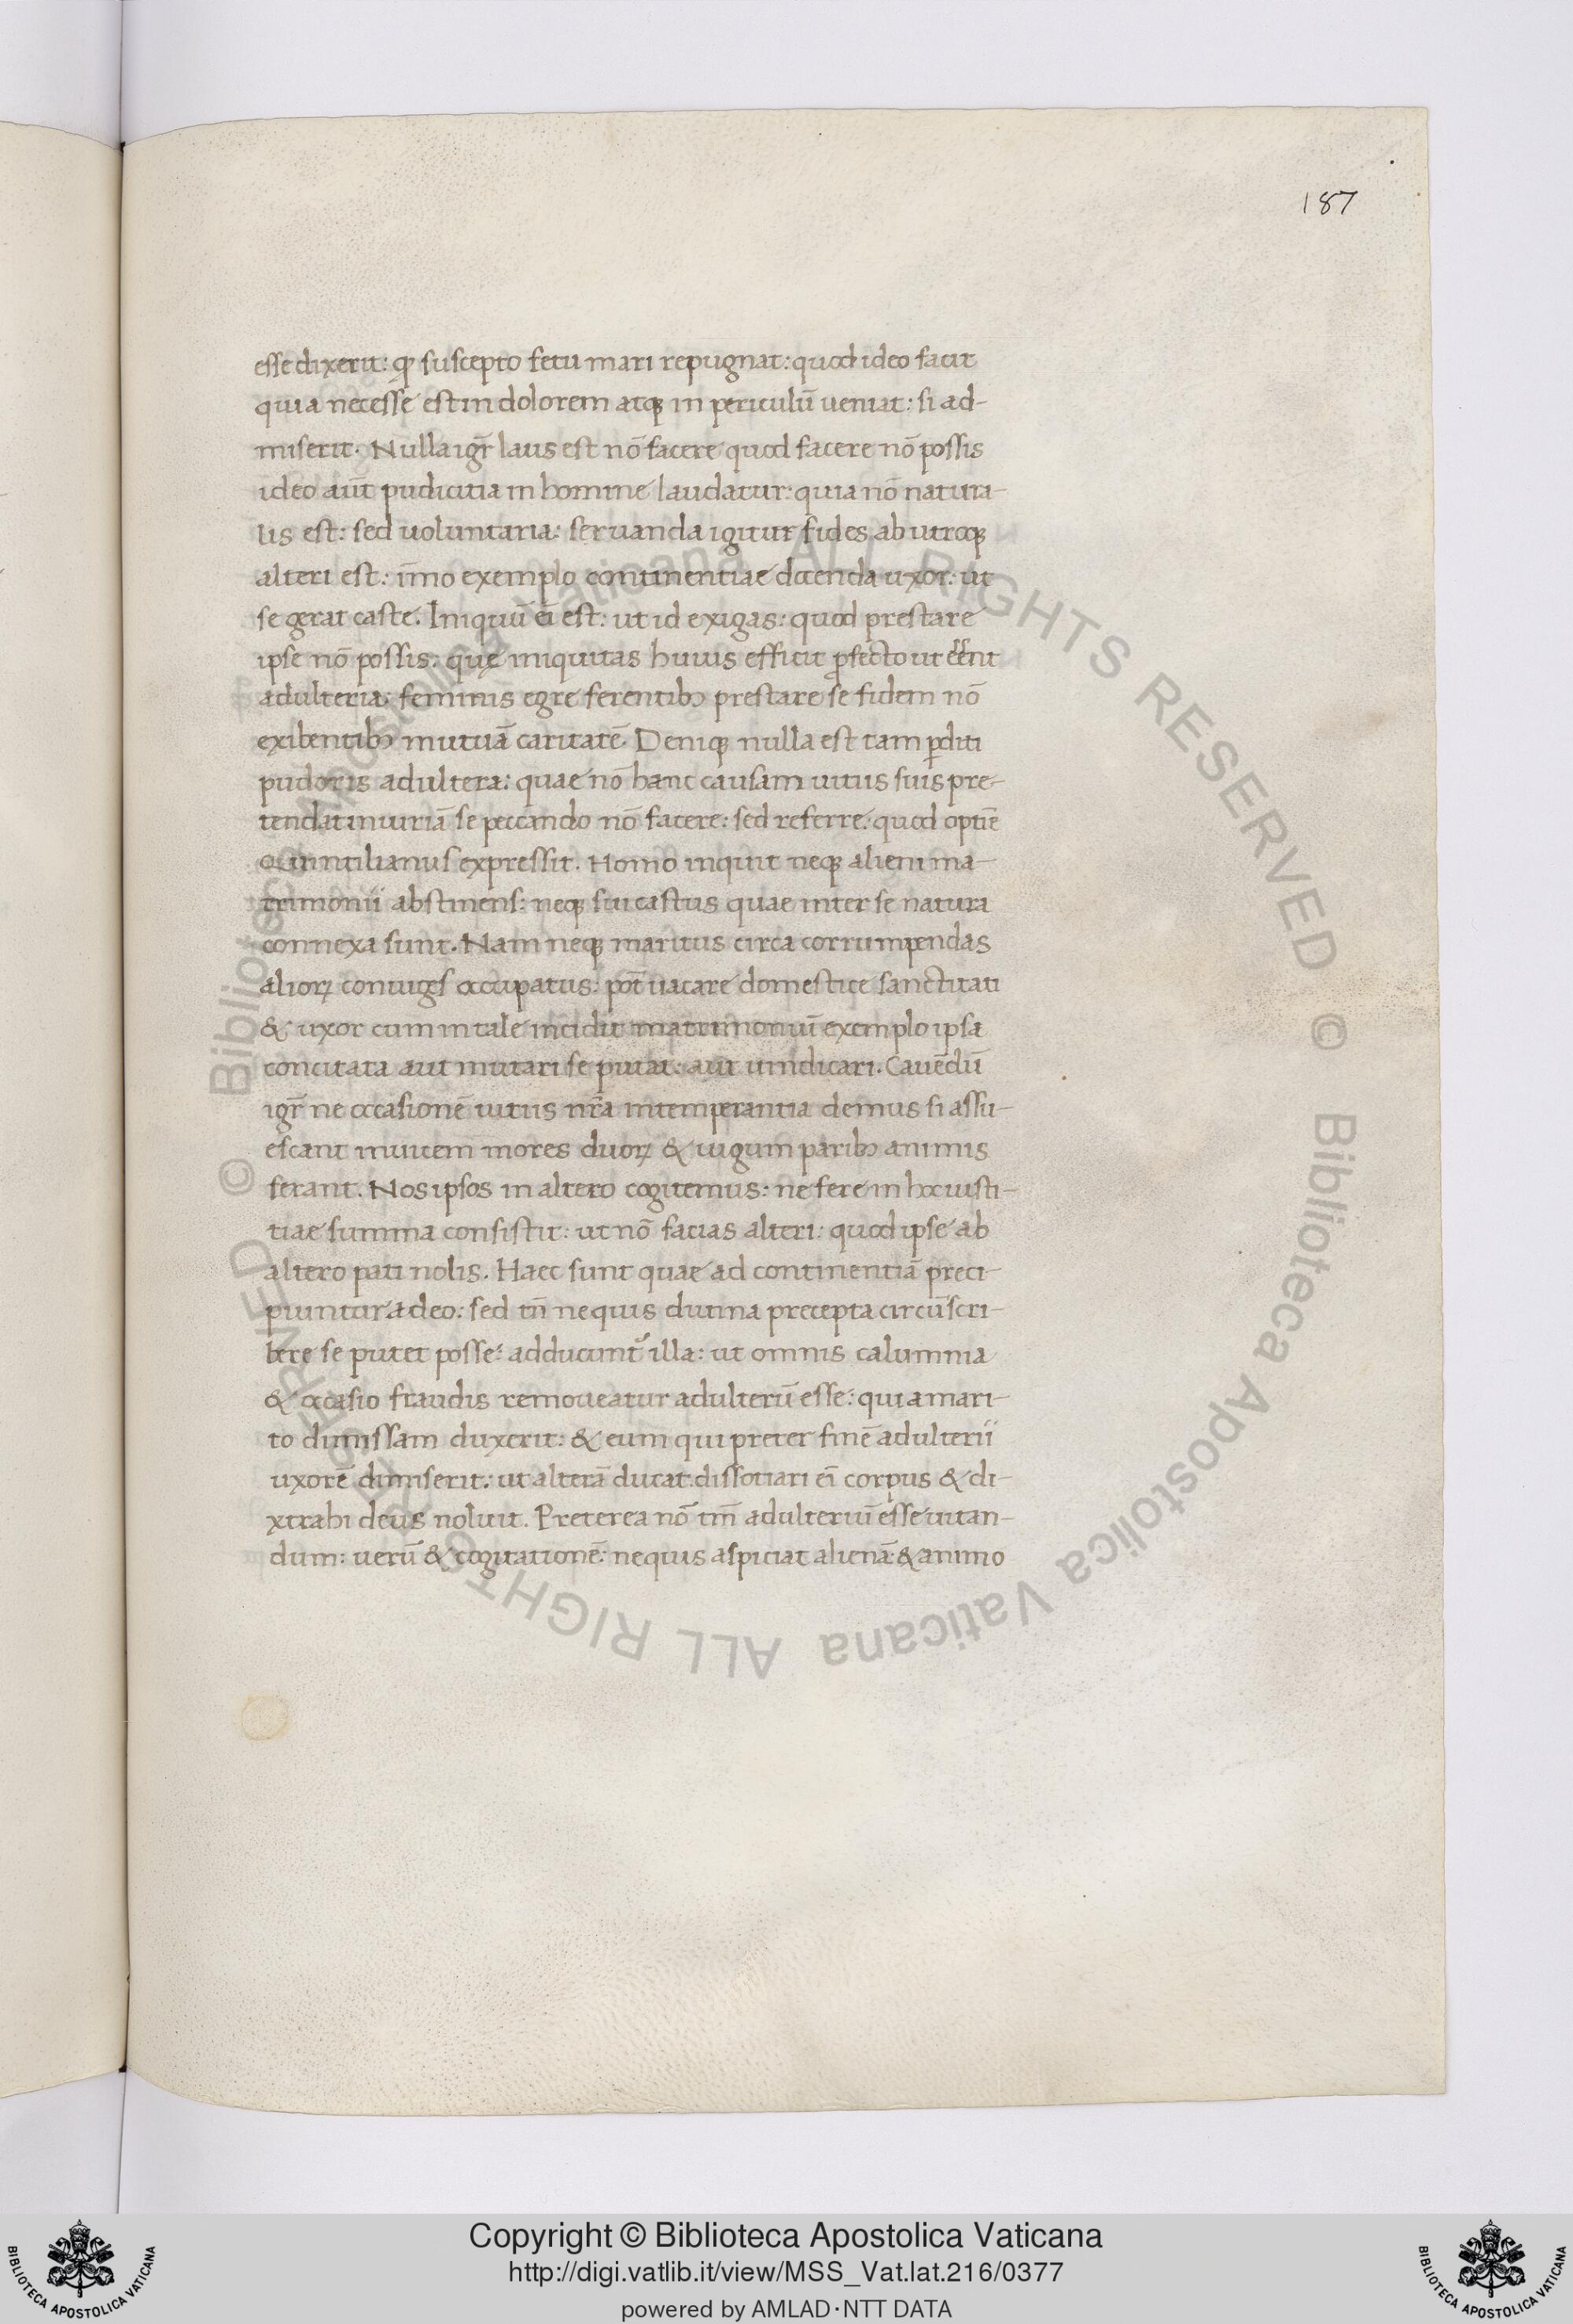 187
esse dixerit: ꝙ suscepto fetu mari repugnat: quod ideo facit
quia necesse est in dolorem atqꝫ in periculũ ueniat: si ad-
miserit. Nulla igr̃ laus est nõ facere quod facere nõ possis
ideo aut̃ pudicitia in homine laudatur: quia nõ natura-
lis est: sed uoluntaria: seruanda igitur fides ab utroqꝫ
alteri est: im̃o exemplo continentiae docenda uxor: ut
se gerat caste. Iniquũ ẽi est: ut id exigas: quod prestare
ipse nõ possis. quę iniquitas huius efficit ꝓfecto ut eẽnt
adulteria: feminis egre ferentibꝫ prestare se fidem nõ
exibentibꝫ mutuã caritatẽ. Deniqꝫ nulla est tam ꝑditi
pudoris adultera: quae nõ hanc causam uitiis suis pre-
tendat iniuriã se peccando nõ facere: sed referre: quod optiẽ
Quintilianus expressit. Homo inquit neqꝫ alieni ma-
trimonii abstinens: neqꝫ sui castus quae inter se natura
connexa sunt. Nam neqꝫ maritus circa corrumpendas
alioꝝ coniuges occupatus: pot̃ uacare domestice sanctitati
& uxor cum in tale incidit matrimoniũ exemplo ipsa
concitata aut mutari se putat: aut uindicari. Cauẽdũ
igr̃ ne occasionẽ uitiis nr̃a intemperantia demus si assu-
escant inuicem mores duoꝝ & iugum paribꝫ animis
ferant. Nos ipsos in altero cogitemus: ne fere in hoc iusti-
tiae summa consistit: ut nõ facias alteri: quod ipse ab
altero pati nolis. Haec sunt quae ad continentiã preci-
piuntur a deo: sed tñ ne quis diuina precepta circũscri-
bere se putet posse: adducunt᷑ illa: ut omnis calumnia
& occasio fraudis remoueatur adulterũ esse: qui a mari-
to dimissam duxerit: & eum qui preter finẽ adulterii
uxorẽ dimiserit: ut alterã ducat: dissotiari ẽi corpus & di-
xtrahi deus noluit. Preterea nõ tm̃ adulteriũ esse uitan-
dum: uerũ & cogitationẽ: ne quis aspiciat alienã: & animo
© Biblioteca Apostolica Vaticana ALL RIGHTS RESERVED © Biblioteca Apostolica Vaticana ALL RIGHTS RESERVED
BIBLIOTECA APOSTOLICA VATICANA
Copyright © Biblioteca Apostolica Vaticana
http://digi.vatlib.it/view/MSS_Vat.lat.216/0377
powered by AMLAD·NTT DATA
BIBLIOTECA APOSTOLICA VATICANA